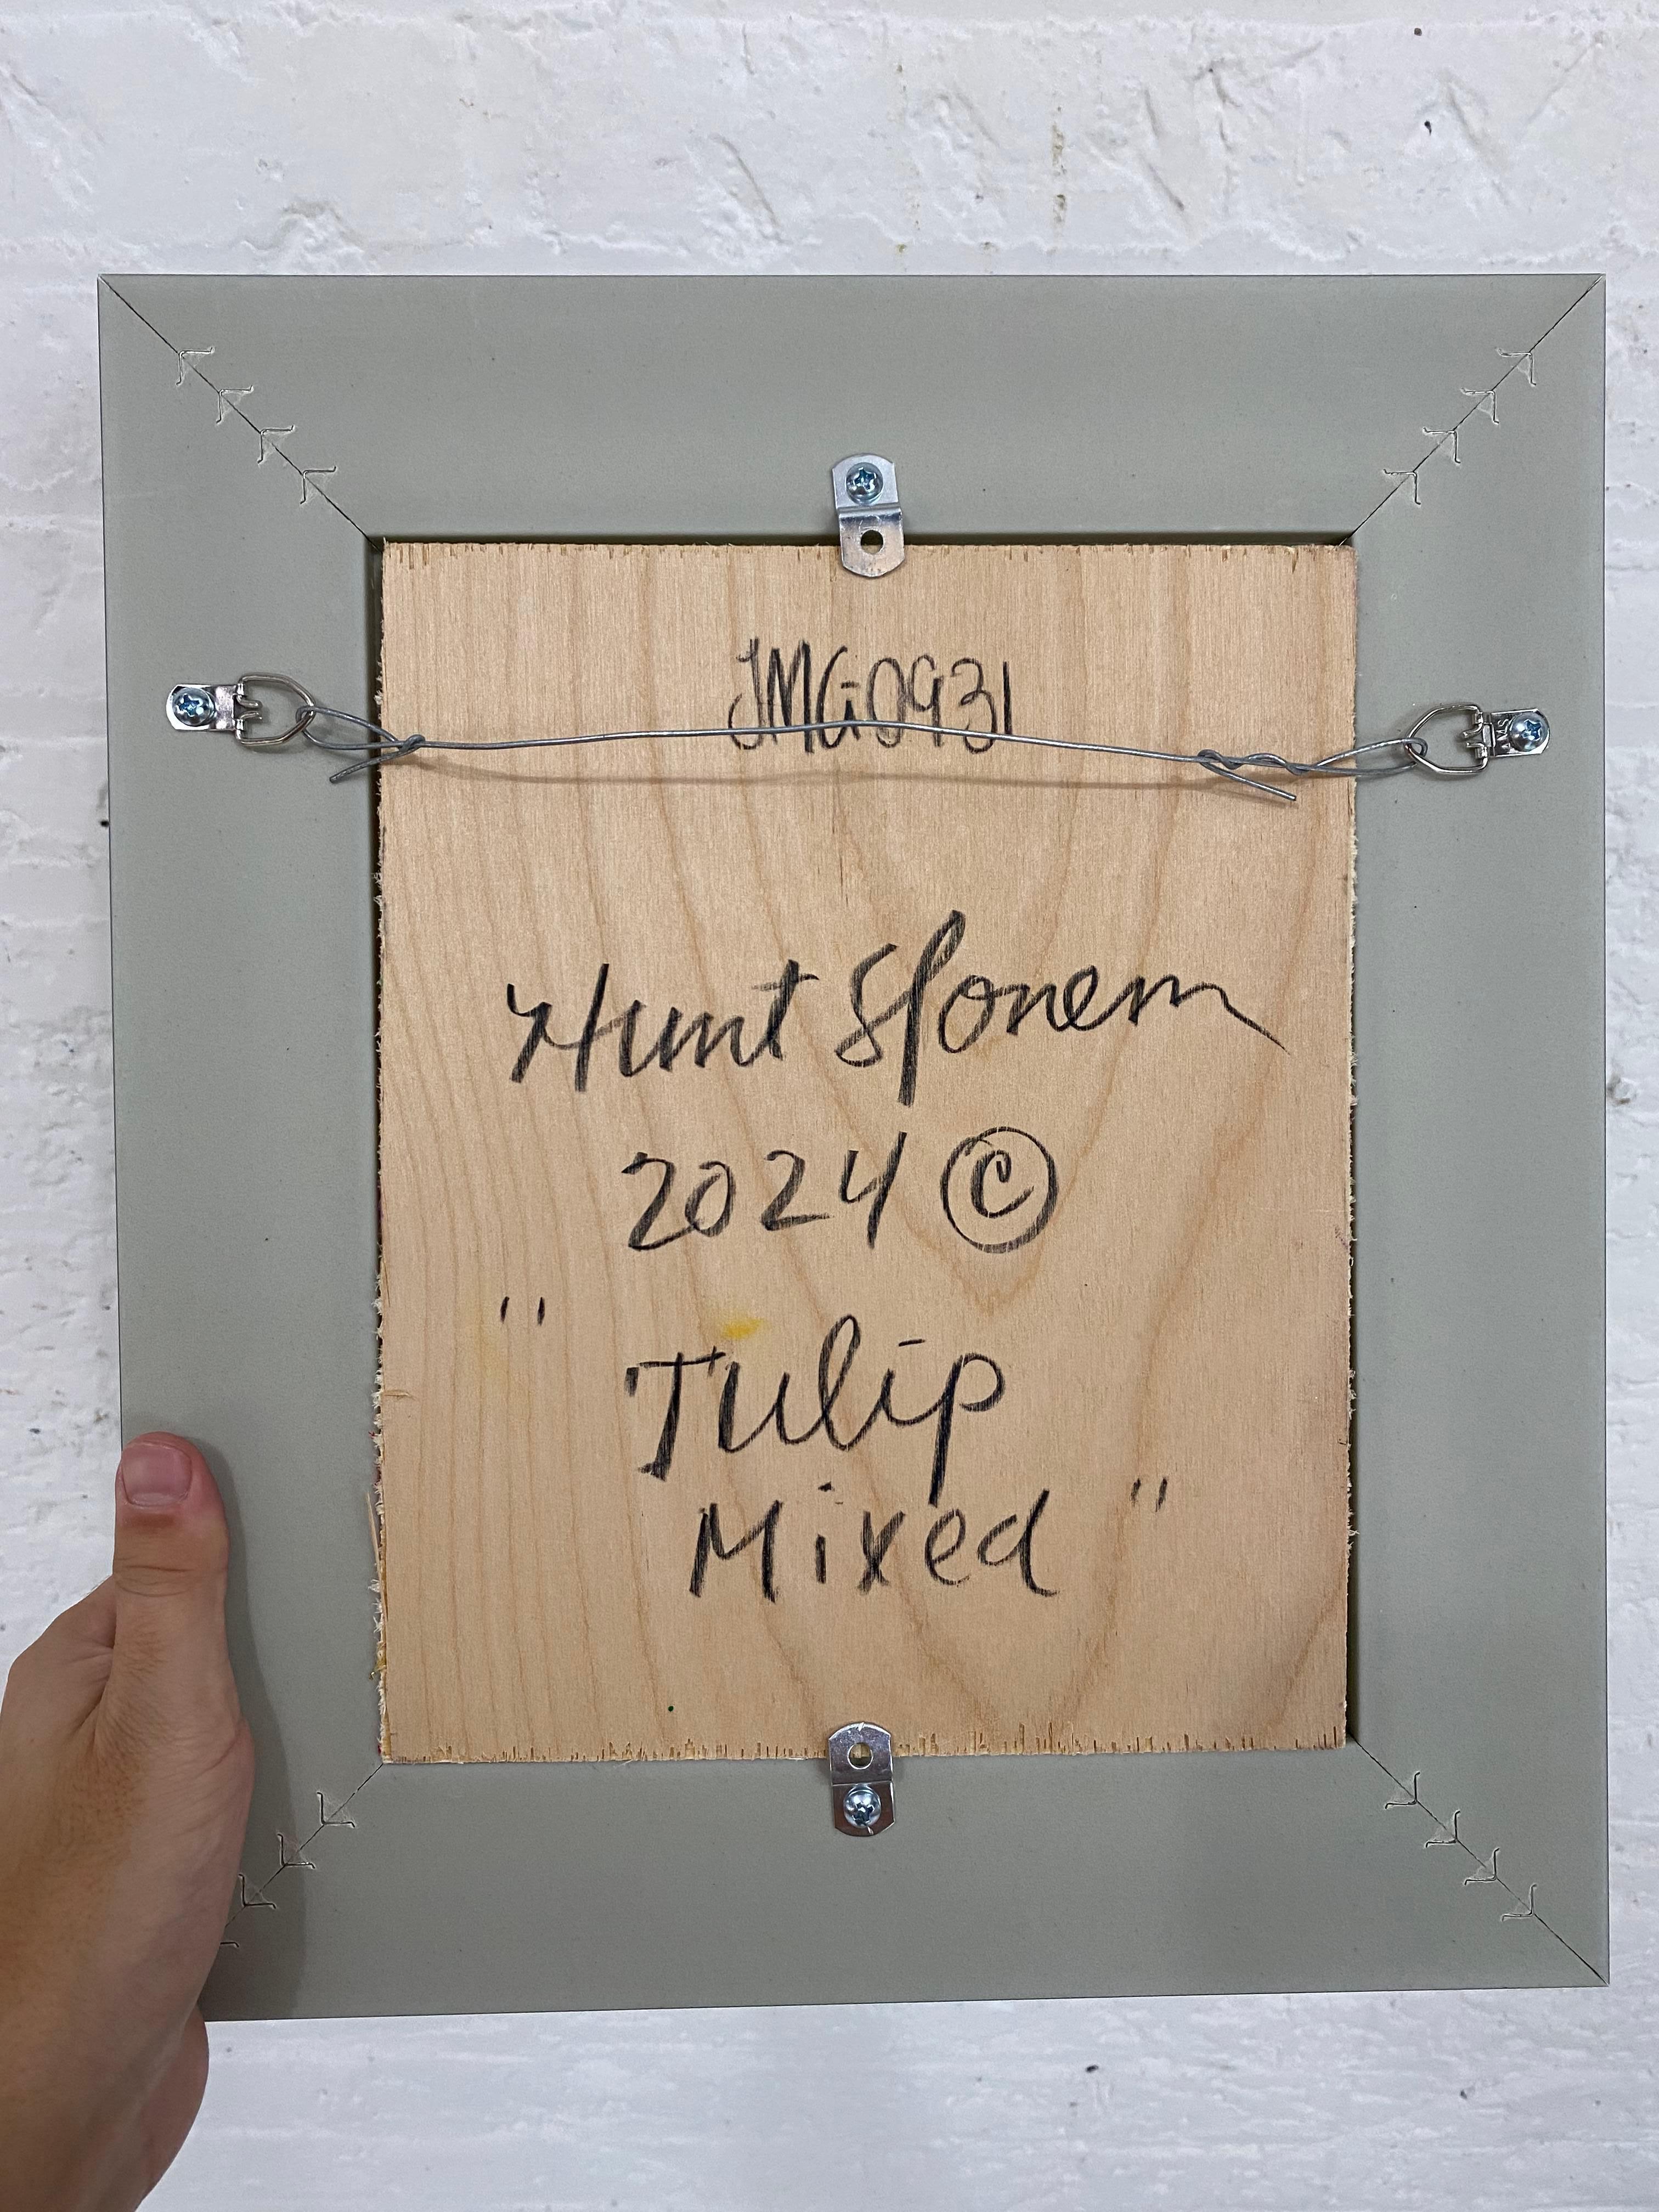 JMG0931
Hunt Slonem
2024 ©
"Tulip
Mixed"